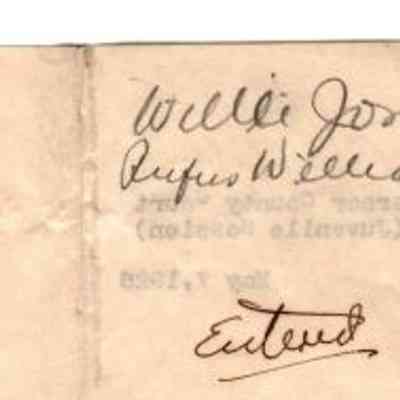 Willie Jo
Rufus Willi
County Court
(Juvenile Session)
May 7, 1928
Entered